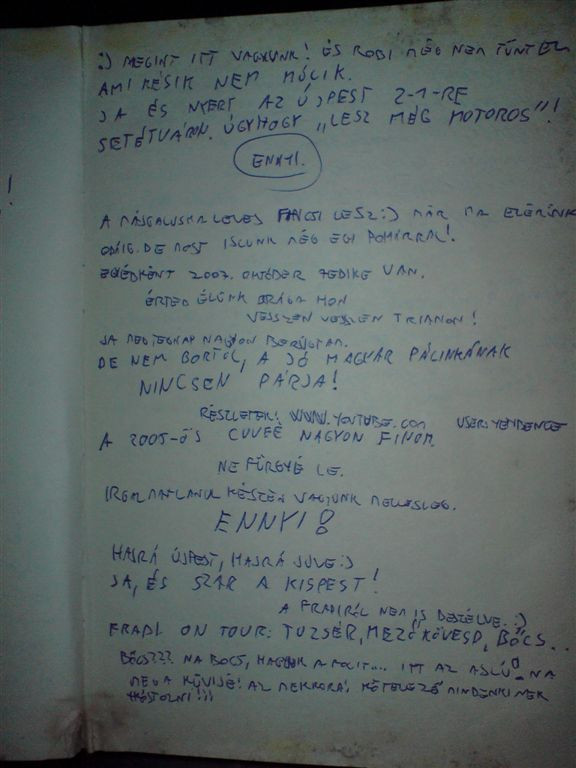 :) MEGINT ITT VAGYUNK! ÉS ROBI MÉG NEM TŰNT EL
AMI KÉSIK NEM MÚLIK.
JA ÉS NYERT AZ ÚJPEST 2-1-RE
ÚGYHOGY „LESZ MÉG MOTOROS"!
ENNYI.
!
A LEVES FANCSI LESZ:) MÁR MA ELÉRÜNK
ODÁIG. DE MOST ISZUNK MÉG EGY POHÁRRAL!
EGYÉBKÉNT 2007. OKTÓBER VAN.
ÉRTED ÉLÜNK DRÁGA HON
VESSZEN VESSZEN TRIANON!
JA MEG TEGNAP NAGYON BERÚGTAM.
DE NEM BORTÓL, A JÓ MAGYAR PÁLINKÁNAK
NINCSEN PÁRJA!
RÉSZLETEK: WWW.YOUTUBE.COM USER:
A 2005-ÖS CUVEÉ NAGYON FINOM
NE FÜRGYÉ LE.
IRGALMATLANUL KÉSZEN VAGYUNK MELLESLEG.
ENNYI!
HAJRÁ ÚJPEST, HAJRÁ JUVE:)
JA, ÉS SZAR A KISPEST!
A FRADIRÓL NEM IS BESZÉLVE. :)
FRADI ON TOUR: TUZSÉR, MEZŐKÖVESD, BŐCS..
BŐCS??? NA BOCS, HAGYJUK A FOCIT... ITT AZ ASZÚ! NA
MEG A AZ KÖTELEZŐ MINDENKINEK
KÓSTOLNI!:))